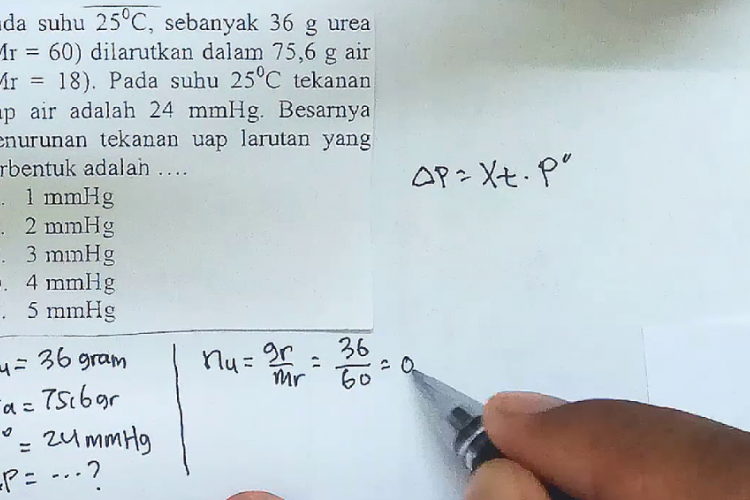 da suhu 25⁰C, sebanyak 36 g urea
Mr = 60) dilarutkan dalam 75,6 g air
Mr = 18). Pada suhu 25⁰C tekanan
ap air adalah 24 mmHg. Besarnya
enurunan tekanan uap larutan yang
rbentuk adalah ....
. 1 mmHg
. 2 mmHg
. 3 mmHg
. 4 mmHg
. 5 mmHg
ΔP = Xt . P⁰
u = 36 gram
a = 75,6 gr
⁰ = 24 mmHg
ΔP = ... ?
nu = gr/Mr = 36/60 = 0